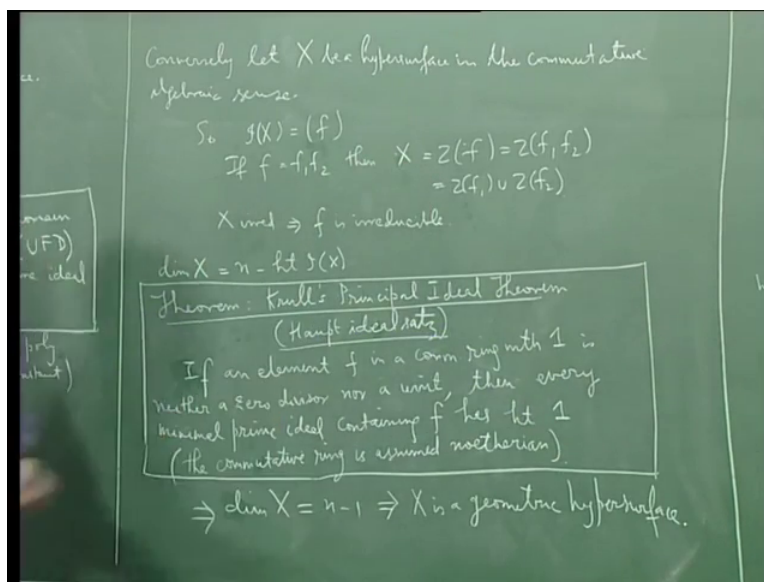 ce.
Conversely let X be a hypersurface in the commutative
algebraic sense.
So 𝓘(X) = (f)
If f = f₁f₂ then X = Z(f) = Z(f₁f₂)
= Z(f₁) ∪ Z(f₂)
X irred ⇒ f is irreducible.
dim X = n - ht 𝓘(X)
Theorem: Krull's Principal Ideal Theorem
(Haupt idealsatz)
If an element f in a comm ring with 1 is
neither a zero divisor nor a unit, then every
minimal prime ideal containing f has ht 1
(the commutative ring is assumed noetherian)
⇒ dim X = n-1 ⇒ X is a geometric hypersurface.
omain
(UFD)
me ideal
poly
nstant)